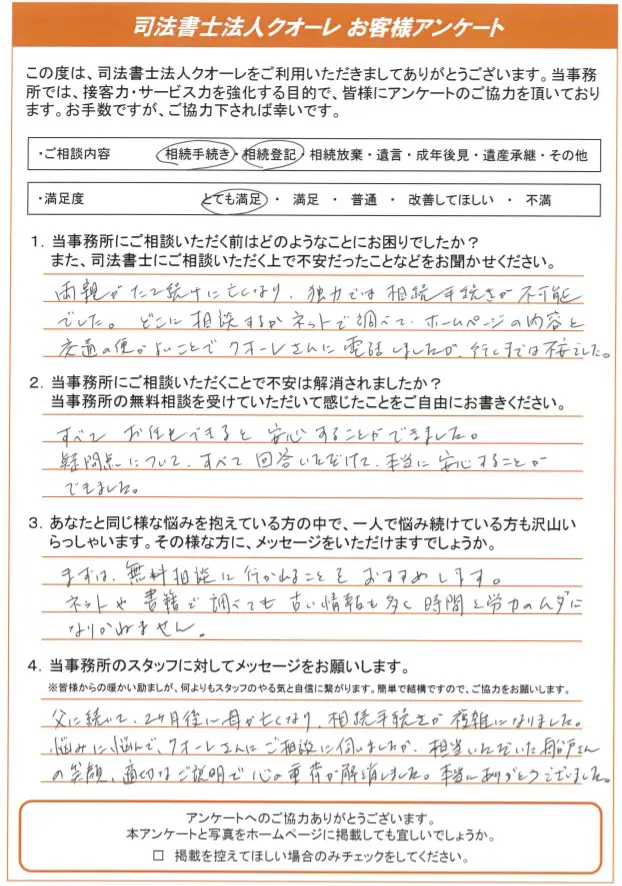 司法書士法人クオーレ お客様アンケート
この度は、司法書士法人クオーレをご利用いただきましてありがとうございます。当事務
所では、接客力・サービス力を強化する目的で、皆様にアンケートのご協力を頂いており
ます。お手数ですが、ご協力下されば幸いです。
・ご相談内容 相続手続き・相続登記・相続放棄・遺言・成年後見・遺産承継・その他
・満足度 とても満足 ・ 満足 ・ 普通 ・ 改善してほしい ・ 不満
1．当事務所にご相談いただく前はどのようなことにお困りでしたか？
また、司法書士にご相談いただく上で不安だったことなどをお聞かせください。
両親がたて続けに亡くなり、独力では相続手続きが不可能
でした。どこに相談するかネットで調べて、ホームページの内容と
交通の便がよいことでクオーレさんに電話しましたが、行くまでは不安でした。
2．当事務所にご相談いただくことで不安は解消されましたか？
当事務所の無料相談を受けていただいて感じたことをご自由にお書きください。
すべてお任せできると安心することができました。
疑問点について、すべて回答いただけて、本当に安心することが
できました。
3．あなたと同じ様な悩みを抱えている方の中で、一人で悩み続けている方も沢山い
らっしゃいます。その様な方に、メッセージをいただけますでしょうか。
まずは、無料相談に行かれることをおすすめします。
ネットや書籍で調べても古い情報も多く時間と労力のムダに
なりかねません。
4．当事務所のスタッフに対してメッセージをお願いします。
※皆様からの暖かい励ましが、何よりもスタッフのやる気と自信に繋がります。簡単で結構ですので、ご協力をお願いします。
父に続いて、2ヶ月後に母が亡くなり、相続手続きが複雑になりました。
悩みに悩んで、クオーレさんにご相談に伺いましたが、担当いただいた船戸さん
の笑顔、適切なご説明で心の重荷が解消しました。本当にありがとうございました。
アンケートへのご協力ありがとうございます。
本アンケートと写真をホームページに掲載しても宜しいでしょうか。
□ 掲載を控えてほしい場合のみチェックをしてください。